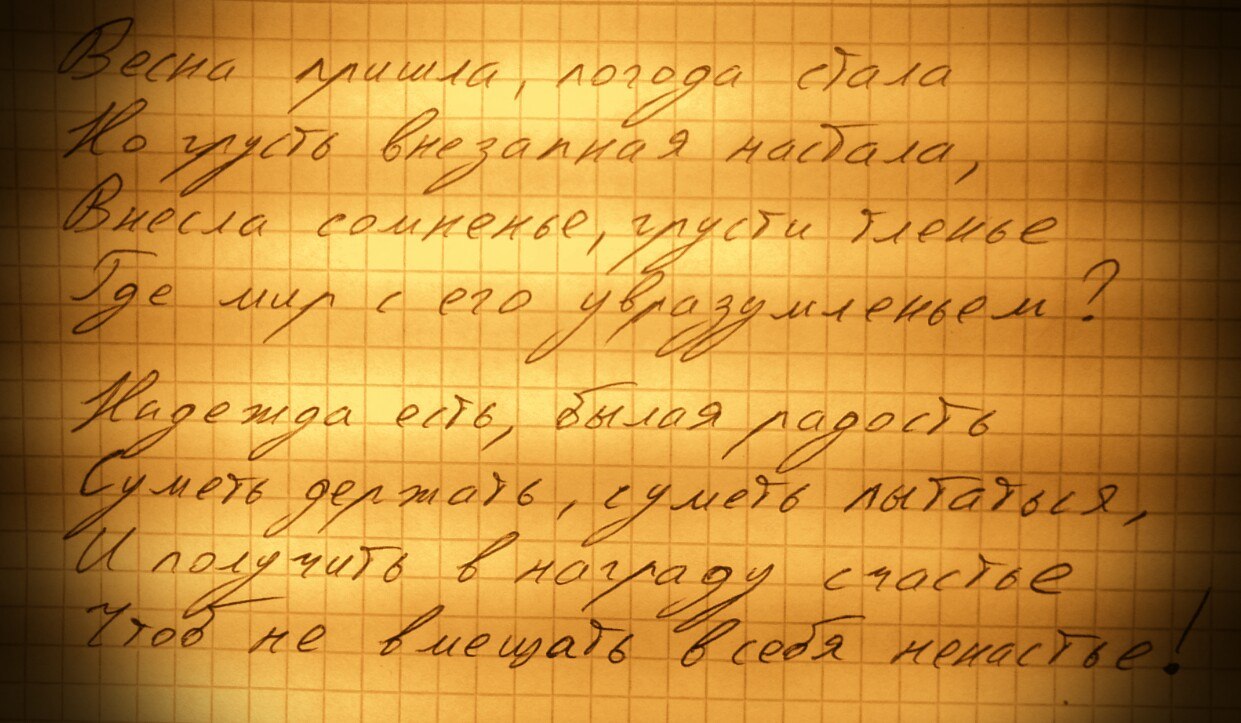 Весна пришла, погода стала
Но грусть внезапная настала,
Внесла сомненье, грусти тленье
Где мир с его увразумленьем?
Надежда есть, былая радость
Суметь держать, суметь пытаться,
И получить в награду счастье
Чтоб не вмещать в себя ненастье!